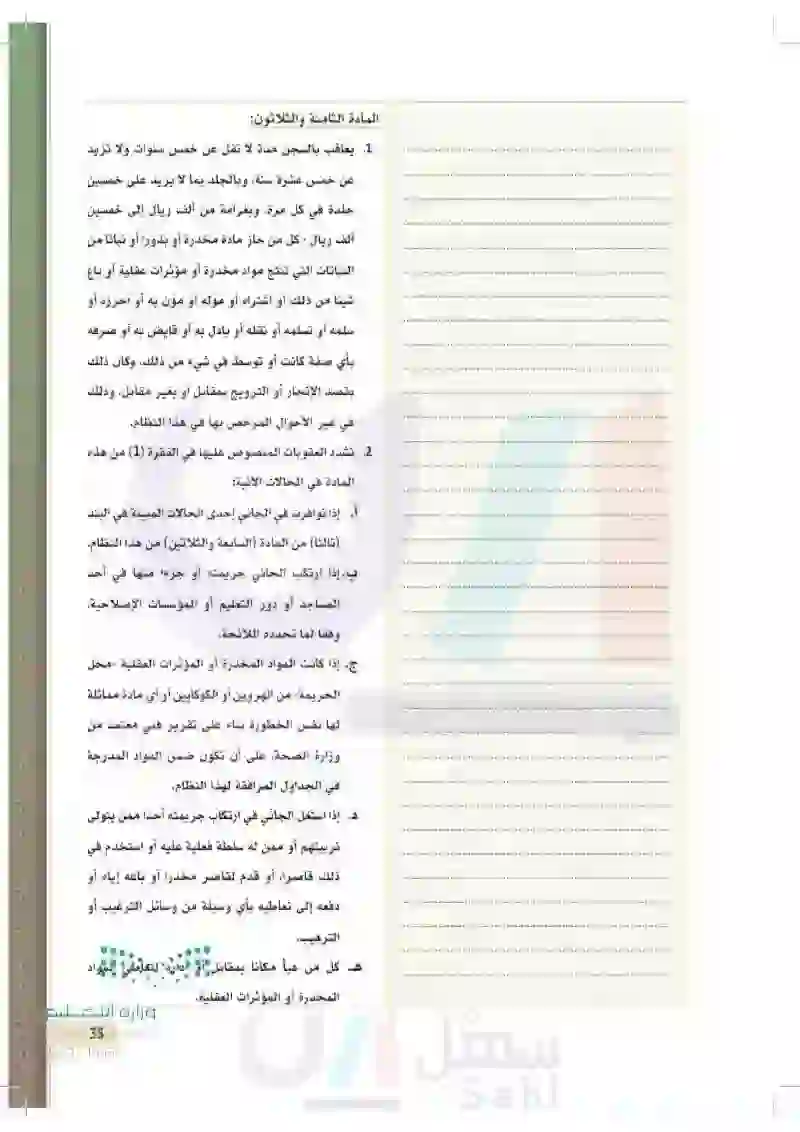 المادة الثامنة والثلاثون:
1. يعاقب بالسجن مدة لا تقل عن خمس سنوات ولا تزيد
عن خمس عشرة سنة، وبالجلد بما لا يزيد على خمسين
جلدة في كل مرة، وبغرامة من ألف ريال إلى خمسين
ألف ريال - كل من حاز مادة مخدرة أو بذورا أو نباتا من
النباتات التي تنتج مواد مخدرة أو مؤثرات عقلية أو باع
شيئا من ذلك أو اشتراه أو موله أو مون به أو أحرزه أو
سلمه أو تسلمه أو نقله أو بادل به أو قايض به أو صرفه
بأي صفة كانت أو توسط في شيء من ذلك، وكان ذلك
بقصد الاتجار أو الترويج بمقابل أو بغير مقابل، وذلك
في غير الأحوال المرخص بها في هذا النظام.
2. تشدد العقوبات المنصوص عليها في الفقرة (1) من هذه
المادة في الحالات الآتية:
أ. إذا توافرت في الجاني إحدى الحالات المبينة في البند
(ثالثا) من المادة (السابعة والثلاثين) من هذا النظام.
ب. إذا ارتكب الجاني جريمته أو جزءا منها في أحد
المساجد أو دور التعليم أو المؤسسات الإصلاحية.
وفقا لما تحدده اللائحة.
ج. إذا كانت المواد المخدرة أو المؤثرات العقلية -محل
الجريمة- من الهروين أو الكوكايين أو أي مادة مماثلة
لها نفس الخطورة بناء على تقرير فني معتمد من
وزارة الصحة، على أن تكون ضمن المواد المدرجة
في الجداول المرافقة لهذا النظام.
د. إذا استغل الجاني في ارتكاب جريمته أحدا ممن يتولى
تربيتهم أو ممن له سلطة فعلية عليه أو استخدم في
ذلك قاصرا، أو قدم لقاصر مخدرا أو باعه إياه أو
دفعه إلى تعاطيه بأي وسيلة من وسائل الترغيب أو
الترهيب.
هـ. كل من هيأ مكانا بمقابل أو أداره لتعاطي المواد
المخدرة أو المؤثرات العقلية.
وزارة التعليم
35
سهل
Sahl